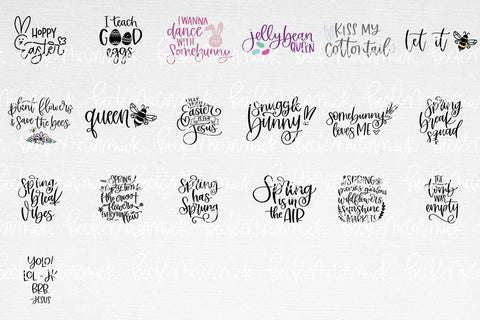 HOPPY
Easter
I teach
GOOD
eggs
I WANNA
dance
WITH
Somebunny
jellybean
QUEEN
KISS MY
cottontail
let it
plant flowers
& save the bees
queen
Easter
is for
Jesus
Snuggle
Bunny
somebunny
loves ME
Spring
break
squad
Spring
break
VIBES
SPRING
flowers
Spring
has
Sprung
Spring
is in
the AIR
SPRING
wildflowers
sunshine
MARKETS
THE
tomb
was
empty
YOLO!
LOL - JK
BRB
-JESUS